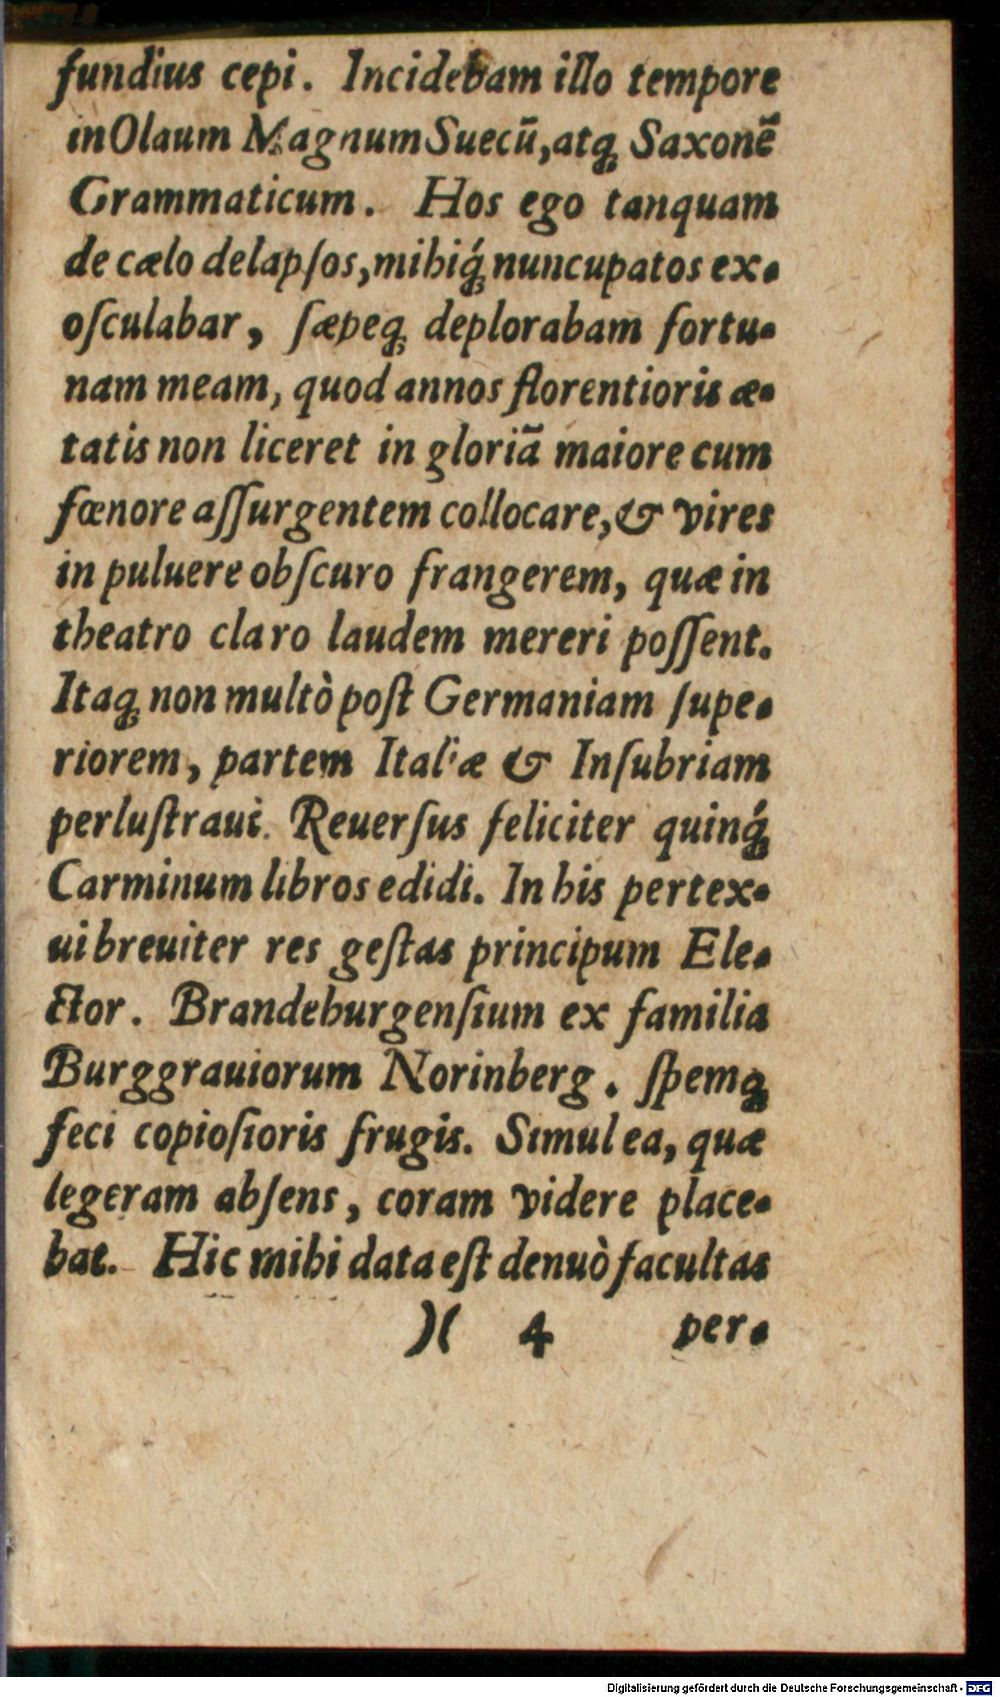 fundius cepi. Incidebam illo tempore
in Olaum Magnum Suecū, atq; Saxonē
Grammaticum. Hos ego tanquam
de cælo delapſos, mihiq́; nuncupatos ex-
oſculabar, ſæpeq; deplorabam fortu-
nam meam, quod annos florentioris æ-
tatis non liceret in gloriā maiore cum
fœnore aſſurgentem collocare, & vires
in puluere obſcuro frangerem, quæ in
theatro claro laudem mereri poſſent.
Itaq; non multò poſt Germaniam ſupe-
riorem, partem Italiæ & Inſubriam
perluſtraui. Reuerſus feliciter quinq́;
Carminum libros edidi. In his pertex-
ui breuiter res geſtas principum Ele-
ctor. Brandeburgenſium ex familia
Burggrauiorum Norinberg. ſpemq;
feci copioſioris frugis. Simul ea, quæ
legeram abſens, coram videre place-
bat. Hic mihi data eſt denuò facultas
)( 4 per-
Digitalisierung gefördert durch die Deutsche Forschungsgemeinschaft - DFG